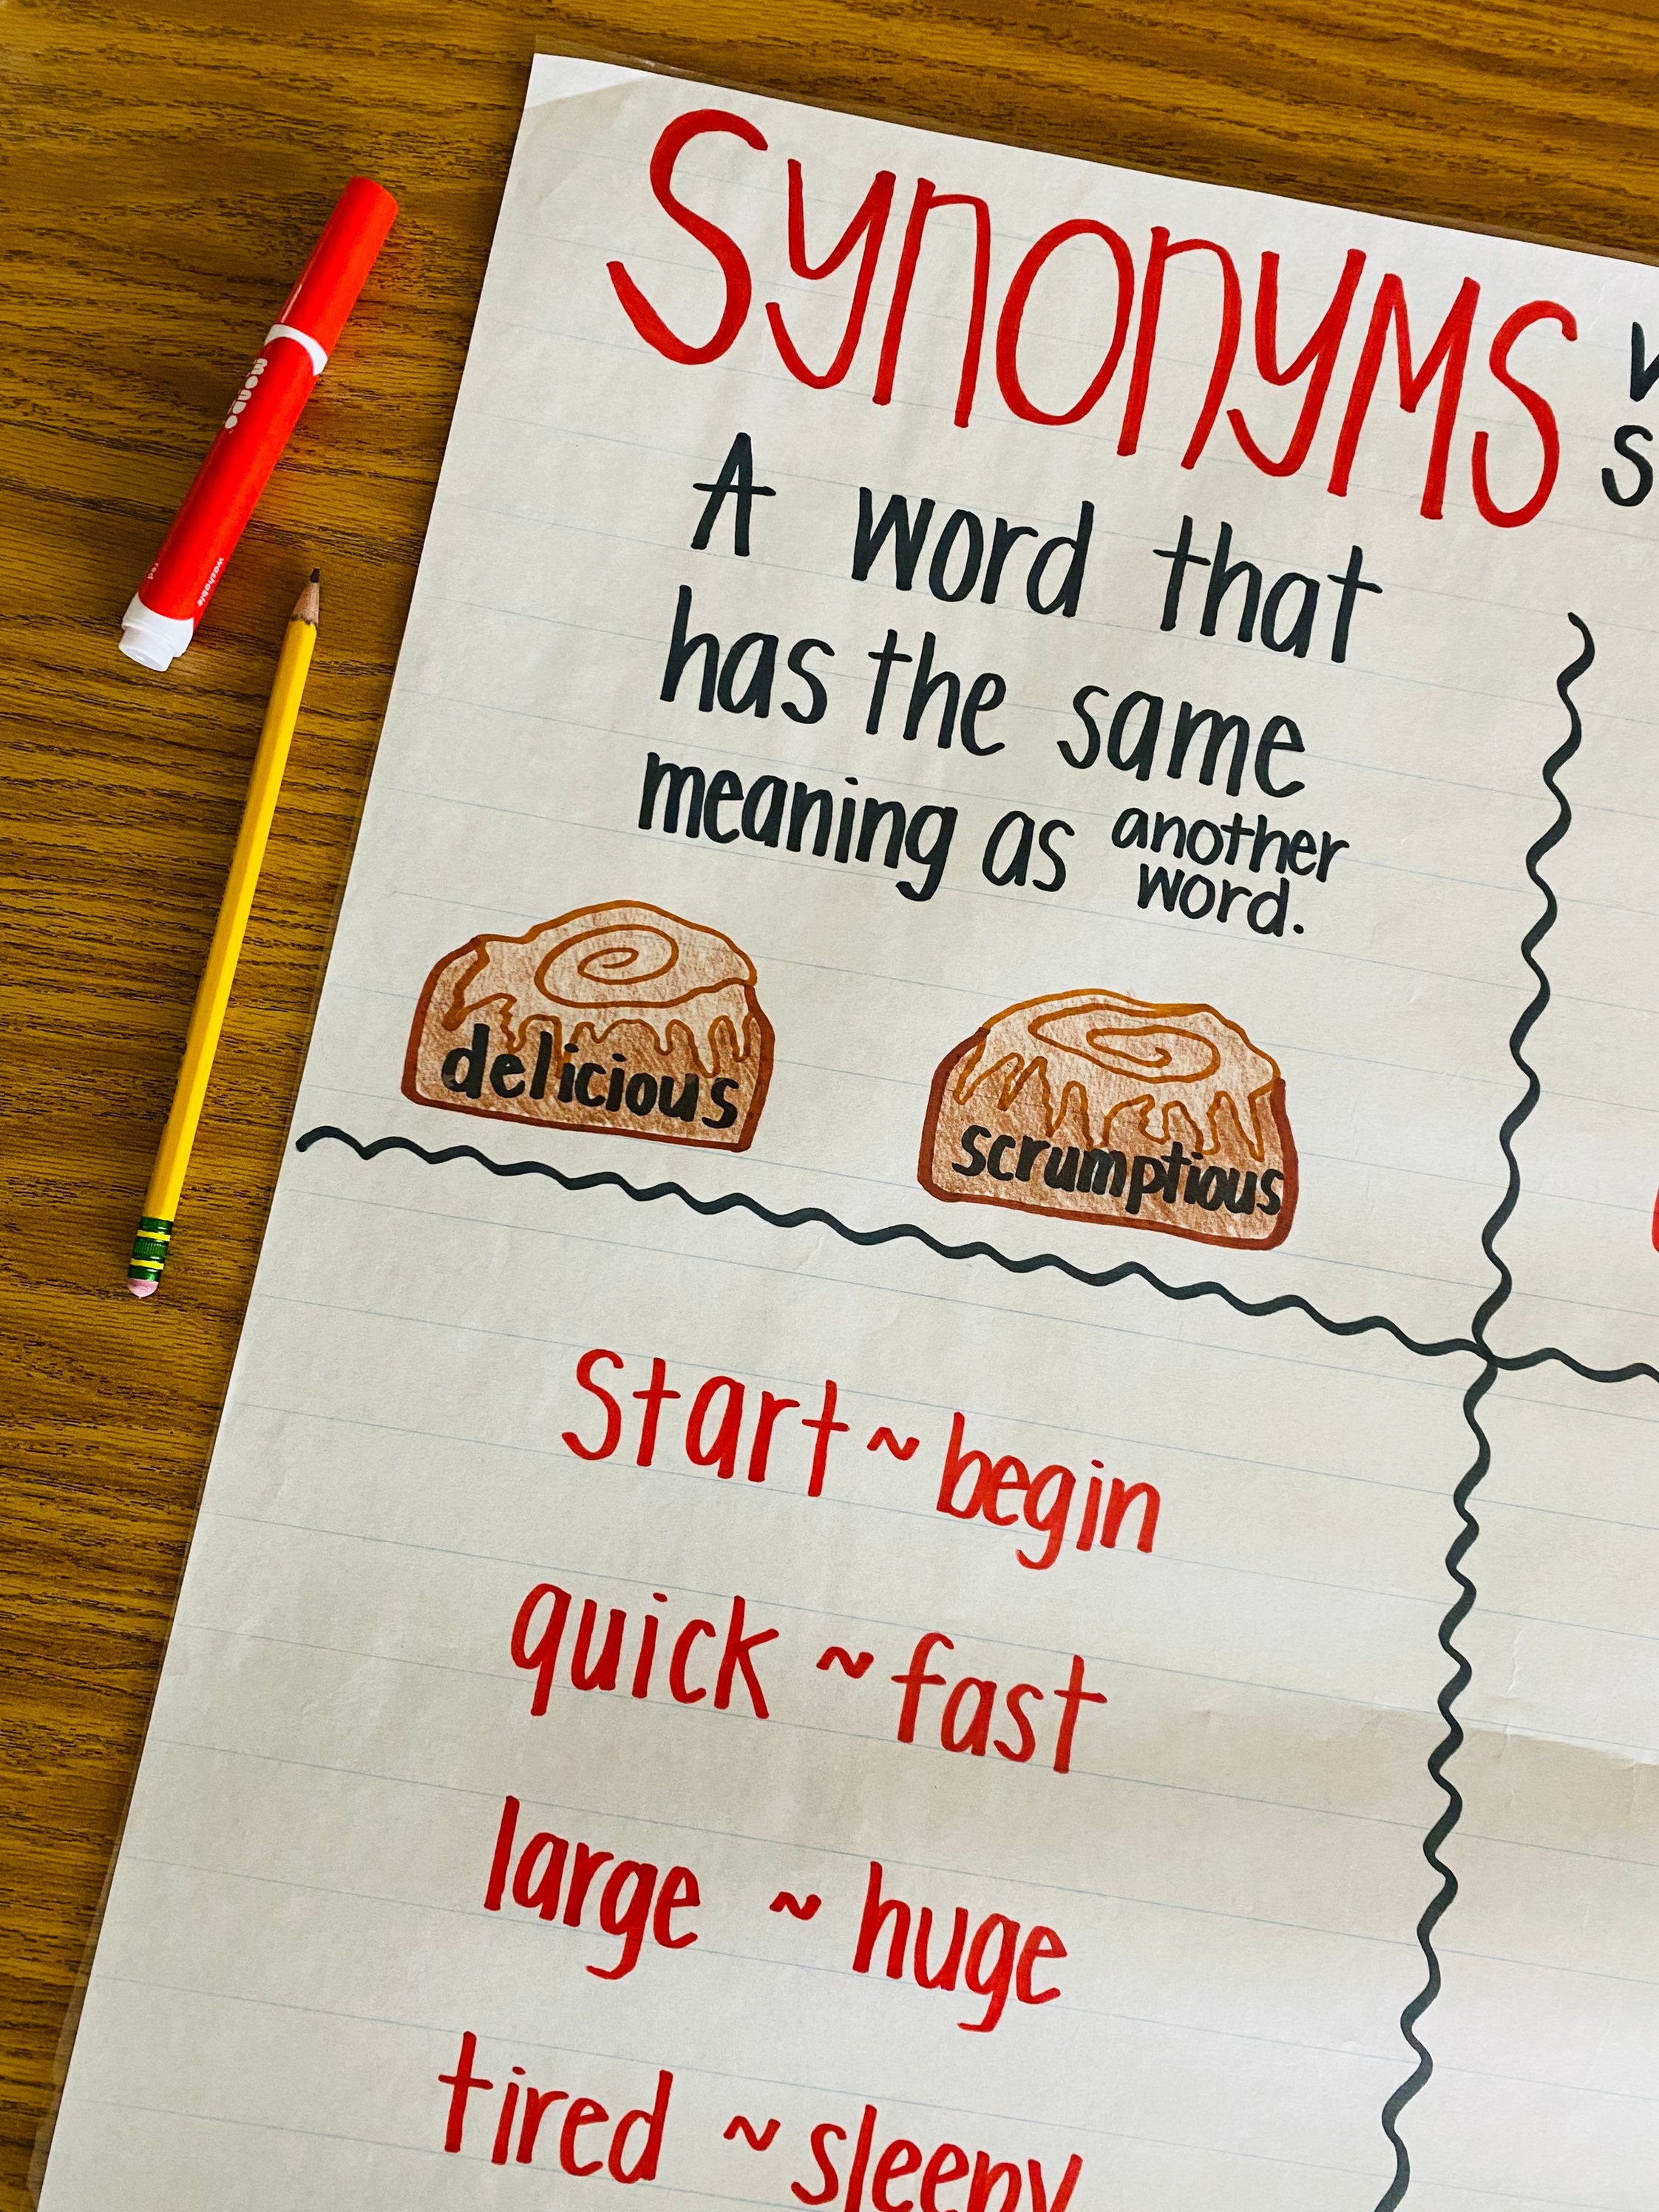 Synonyms
A word that
has the same
meaning as another
word.
delicious
scrumptious
Start ~ begin
quick ~ fast
large ~ huge
tired ~ sleepy
mondo
washable
red